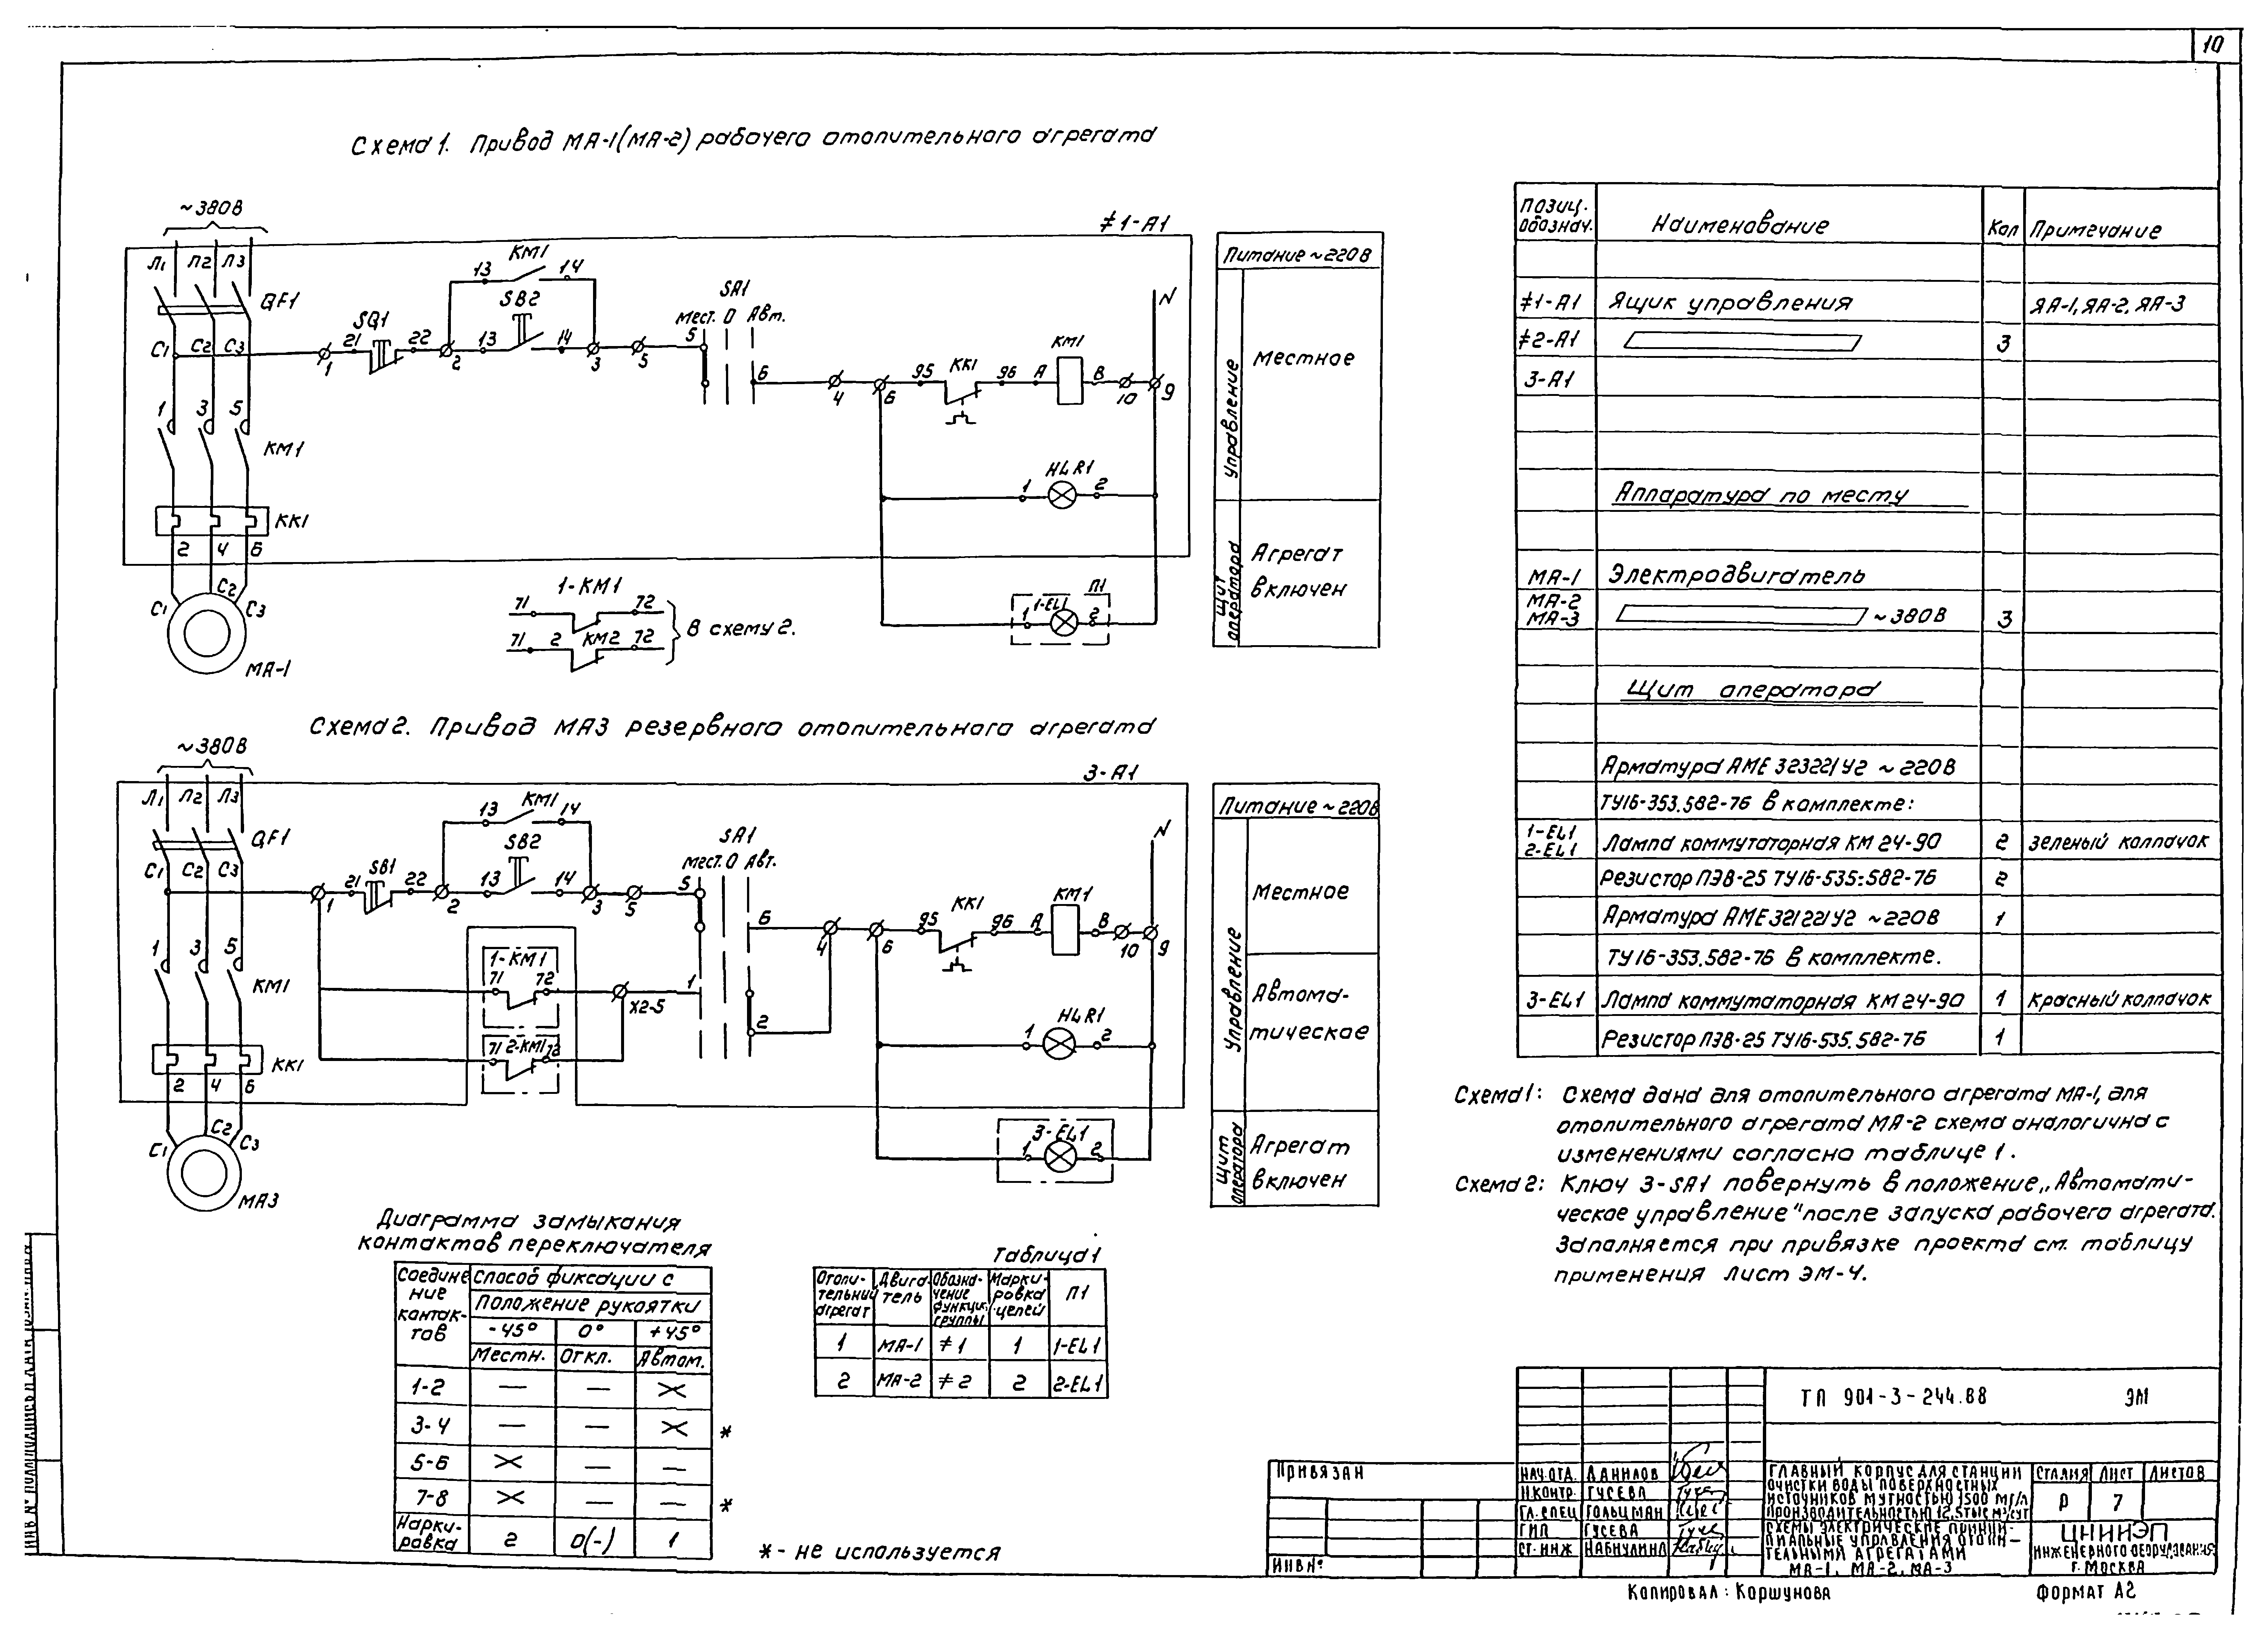 10
Схема 1. Привод МА-1(МА-2) рабочего отопительного агрегата
~380В
≠1-А1
Л1 Л2 Л3
QF1
C1 C2 C3
SQ1
21 22
1
2
KM1
13 14
SB2
13 14
3
5
SA1
Мест. 0 Авт.
5
6
4
6
95 KK1 96
A KM1 B
10
9
N
1 3 5
KM1
KK1
2 4 6
C1 C2 C3
МА-1
1 HLR1 2
П1
1 1-EL1 2
1-KM1
71 72
71 2 KM2 72
В схему 2.
Питание ~220В
Управление
Местное
Щит оператора
Агрегат
включен
Схема 2. Привод МА3 резервного отопительного агрегата
~380В
3-А1
Л1 Л2 Л3
QF1
C1 C2 C3
SB1
21 22
1
2
KM1
13 14
SB2
13 14
3
5
SA1
Мест. 0 Авт.
5
6
4
6
95 KK1 96
A KM1 B
10
9
N
1-KM1
71 72
X2-5
1
2
71 2-KM1 72
1 3 5
KM1
KK1
2 4 6
C1 C2 C3
МА3
1 HLR1 2
1 3-EL1 2
Питание ~220В
Управление
Местное
Автома-
тическое
Щит оператора
Агрегат
включен
Диаграмма замыкания
контактов переключателя
Соедине
ние
контак-
тов
Способ фиксации С
Положение рукоятки
-45° 0° +45°
Местн. Откл. Автом.
1-2 — — X
3-4 — — X *
5-6 X — —
7-8 X — — *
Марки-
ровка 2 0(-) 1
*- не используется
Таблица 1
Отопи-
тельный
агрегат
Двига-
тель
Обозна-
чение
функц.
группы
Марки-
ровка
цепей
П1
1 МА-1 ≠1 1 1-EL1
2 МА-2 ≠2 2 2-EL1
Позиц.
обознач. Наименование Кол Примечание
≠1-А1 Ящик управления ЯА-1, ЯА-2, ЯА-3
≠2-А1 3
3-А1
Аппаратура по месту
МА-1 Электродвигатель
МА-2
МА-3 ~380В 3
Щит оператора
Арматура АМЕ 323221У2 ~220В
ТУ16-353.582-76 в комплекте:
1-EL1
2-EL1 Лампа коммутаторная КМ 24-90 2 Зеленый колпачок
Резистор ПЭВ-25 ТУ16-535.582-76 2
Арматура АМЕ 321221У2 ~220В 1
ТУ16-353.582-76 в комплекте.
3-EL1 Лампа коммутаторная КМ 24-90 1 Красный колпачок
Резистор ПЭВ-25 ТУ16-535.582-76 1
Схема 1: Схема дана для отопительного агрегата МА-1, для
отопительного агрегата МА-2 схема аналогична с
изменениями согласно таблице 1.
Схема 2: Ключ 3-SA1 повернуть в положение „Автомати-
ческое управление" после запуска рабочего агрегата.
Заполняется при привязке проекта см. таблицу
применения лист ЭМ-4.
ТП 901-3-244.88 ЭМ
Привязан
ИНВ№
НАЧ.ОТД. ДАНИЛОВ
Н.КОНТР. ГУСЕВА
ГЛ.СПЕЦ ГОЛЬЦМАН
ГИП ГУСЕВА
СТ.ИНЖ НАБИУЛИНА
ГЛАВНЫЙ КОРПУС ДЛЯ СТАНЦИИ
ОЧИСТКИ ВОДЫ ПОВЕРХНОСТНЫХ
ИСТОЧНИКОВ МУТНОСТЬЮ 1500 МГ/Л
ПРОИЗВОДИТЕЛЬНОСТЬЮ 12,5 ТЫС М³/СУТ
СХЕМЫ ЭЛЕКТРИЧЕСКИЕ ПРИНЦИ-
ПИАЛЬНЫЕ УПРАВЛЕНИЯ ОТОПИ-
ТЕЛЬНЫМИ АГРЕГАТАМИ
МА-1, МА-2, МА-3
СТАДИЯ ЛИСТ ЛИСТОВ
Р 7
ЦНИИЭП
ИНЖЕНЕРНОГО ОБОРУДОВАНИЯ
Г. МОСКВА
Копировал: Коршунова
ФОРМАТ А2